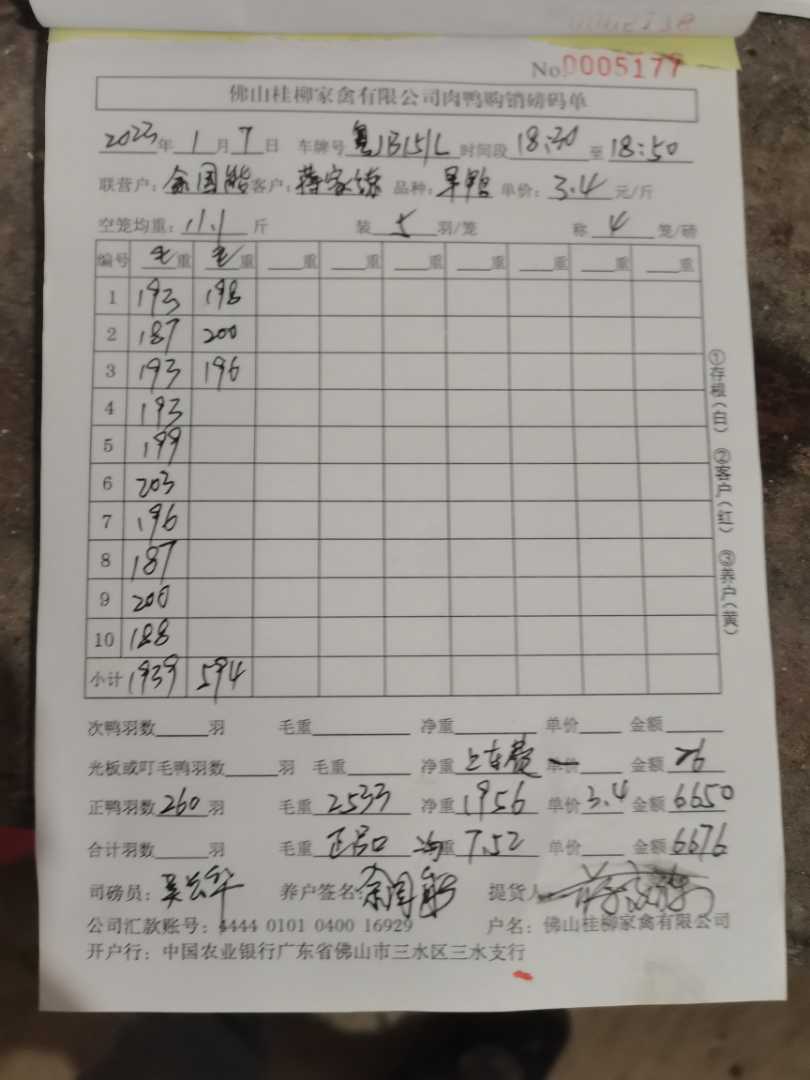 No 0005177
佛山桂柳家禽有限公司肉鸭购销磅码单
2023年 1月 7日 车牌号 粤JB151L 时间段 18:30 至 18:50
联营户: 余国能 客户: 蒋家 品种: 旱鸭 单价: 3.4 元/斤
空笼均重: 11.1 斤 装 5 羽/笼 称 4 笼/磅
编号 毛重 毛重 重 重 重 重 重 重 重
1 193 198
2 187 200
3 193 196
4 193
5 199
6 203
7 196
8 187
9 200
10 188
小计 1939 594
①存根(白) ②客户(红) ③养户(黄)
次鸭羽数 羽 毛重 净重 单价 金额
光板或叮毛鸭羽数 羽 毛重 净重 上车费 单价 金额 26
正鸭羽数 260 羽 毛重 2533 净重 1956 单价 3.4 金额 6650
合计羽数 羽 毛重 正品 均重 7.52 单价 金额 6676
司磅员: 吴 华 养户签名: 余国能 提货人
公司汇款账号: 4444 0101 0400 16929 户名: 佛山桂柳家禽有限公司
开户行: 中国农业银行广东省佛山市三水区三水支行